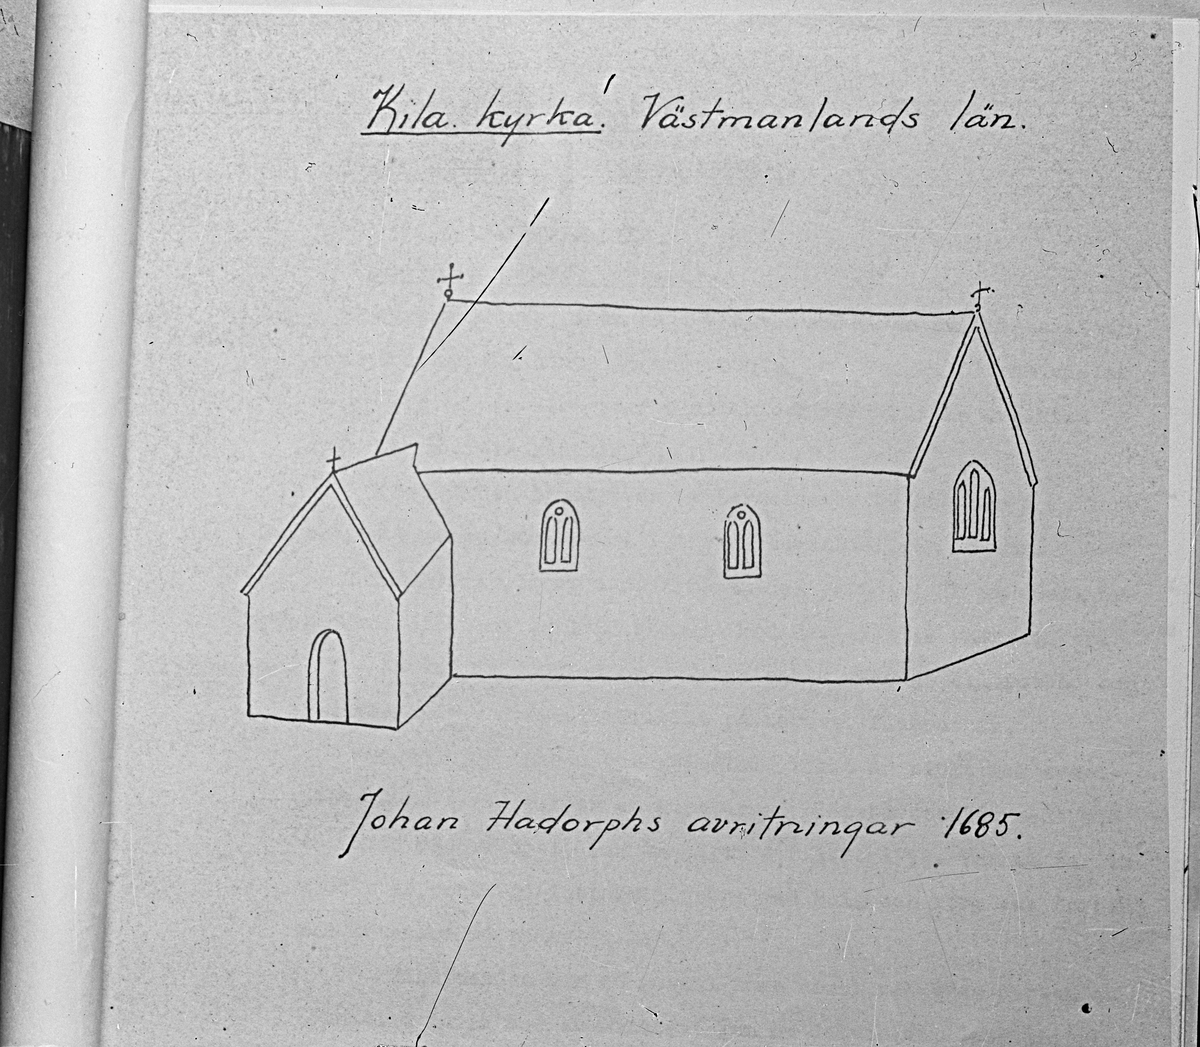 Kila. kyrka! Västmanlands län.
Johan Hadorphs avritningar 1685.